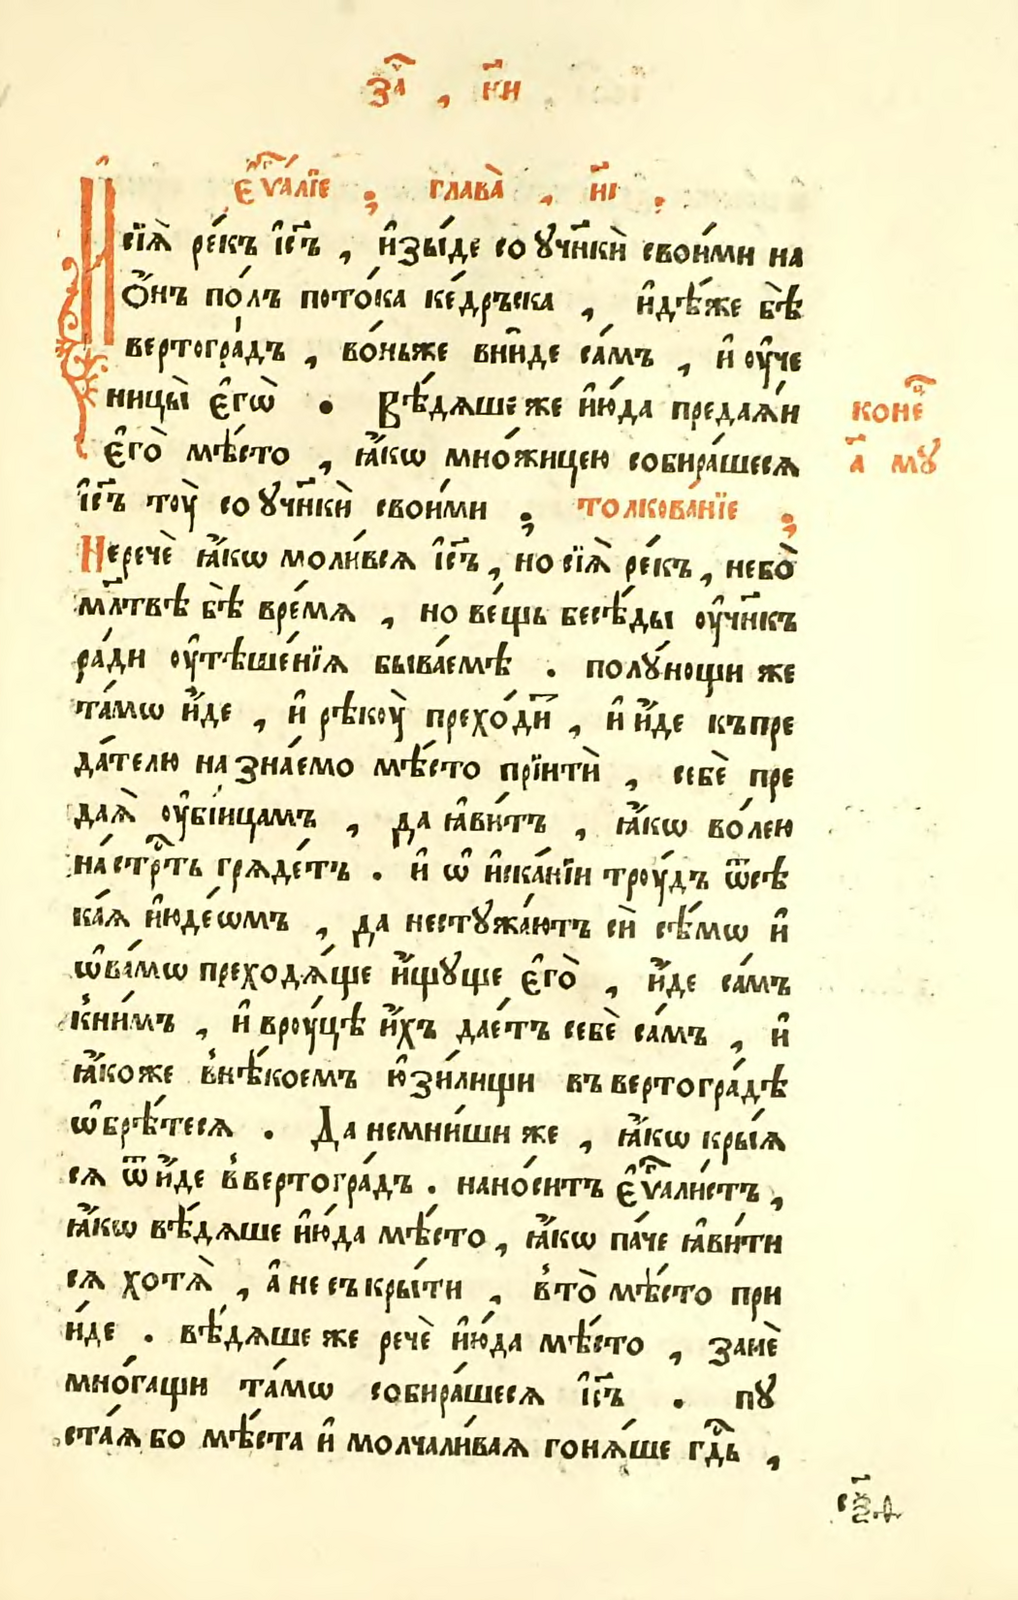 за҇ , н҃и
є҆ѵⷢ҇а́лїе ; глава̀ , и҃і .
И сїѧ̀ ре́къ і҆с҃ъ , и҆зы́де со ᲂу҆чн҃кѝ свои́ми на
ѻ҆́нъ по́лъ пото́ка ке́дръска , и҆дѣ́же бѣ̀
вертогра́дъ , во́ньже вни́де са́мъ , и҆ ᲂу҆че
ницы̀ є҆гѡ̀ . Вѣ́дѧше же и҆ю́да предаѧ́и
є҆го̀ мѣ́сто , ꙗ҆́кѡ мно́жицею собира́шесѧ
і҆с҃ъ тꙋ̀ со ᲂу҆чн҃кѝ свои́ми ; толкова́нїе ;
коне́цⷭ҇
а҃ мꙋ
Неречѐ ꙗ҆́кѡ моли́всѧ і҆с҃ъ , но сїѧ̀ ре́къ , небо̀
мл҃твѣ бѣ̀ вре́мѧ , но ве́щь бесѣ́ды ᲂу҆чн҃къ
ра́ди ᲂу҆тѣше́нїѧ быва́емѣ . полꙋ́нощи же
та́мѡ и҆́де , и҆ рѣкꙋ̀ преходи́ , и҆ и҆́де къ пре
да́телю на зна́емо мѣ́сто прїитѝ , себѐ пре
даѧ̀ ᲂу҆бі́ицамъ , да ꙗ҆ви́тъ , ꙗ҆́кѡ во́лею
на стрⷭ҇ть грѧде́тъ . и҆ ѡ҆ и҆ска́нїи трꙋ́дъ ѿсѣ
ка́ѧ и҆юде́ѡмъ , да нестꙋжа́ютъ си́ сѣ́мѡ и҆
ѡ҆ва́мѡ преходѧ́ще и҆́щꙋще є҆го̀ , и҆́де са́мъ
к̾ни́мъ , и҆ врꙋ́цѣ и҆́хъ дае́тъ себѐ са́мъ , и҆
ꙗ҆́коже в̾нѣ́коемъ ю҆зи́лищи въ вертогра́дѣ
ѡ҆брѣ́тесѧ . Да немни́ши же , ꙗ҆́кѡ кры́ѧ
сѧ ѿи́де в̾вертогра́дъ . нано́ситъ є҆ѵⷢ҇али́стъ ,
ꙗ҆́кѡ вѣ́дѧше и҆ю́да мѣ́сто , ꙗ҆́кѡ па́че ꙗ҆ви́ти
сѧ хотѧ̀ , а҆ не съкры́ти , в̾то̀ мѣ́сто при
и́де . вѣ́дѧше же речѐ и҆ю́да мѣ́сто , занѐ
мно́гащи та́мѡ собира́шесѧ і҆с҃ъ . пꙋ
ста́ѧ бо мѣ́ста и҆ молчали́ваѧ гонѧ́ше гдⷭ҇ь ,